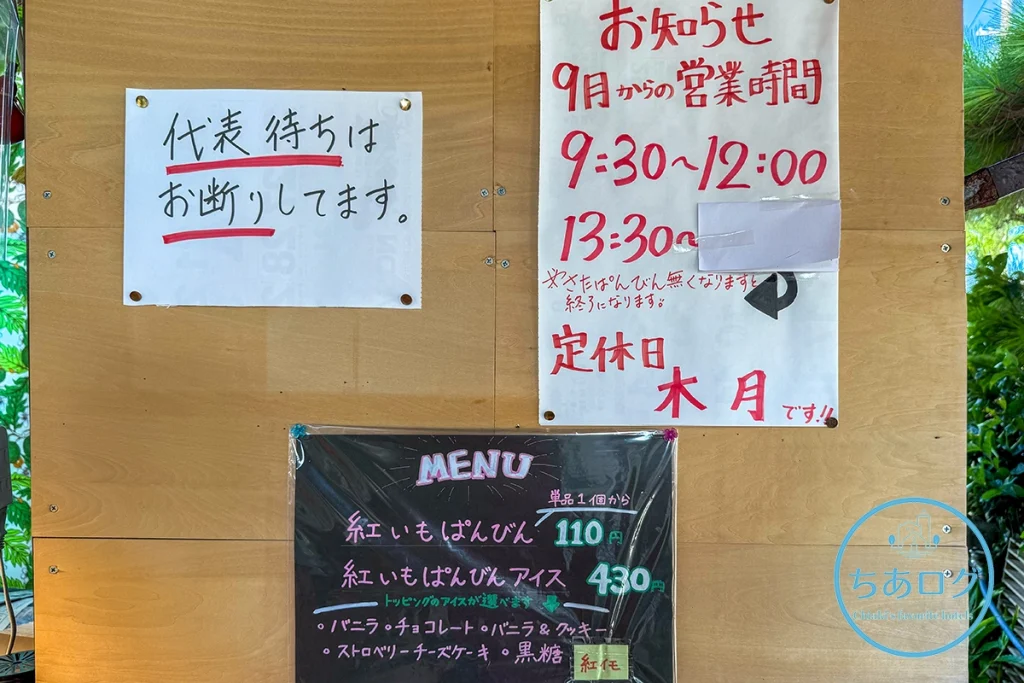 代表待ちは
お断りしてます。
お知らせ
9月からの営業時間
9:30~12:00
13:30~
※さたぱんびん無くなりますと
終了になります。
定休日
木 月 です!!
MENU
単品1個から
紅いもぱんびん 110円
紅いもぱんびんアイス 430円
トッピングのアイスが選べます
・バニラ・チョコレート・バニラ&クッキー
・ストロベリーチーズケーキ ・黒糖
紅イモ
ちあログ